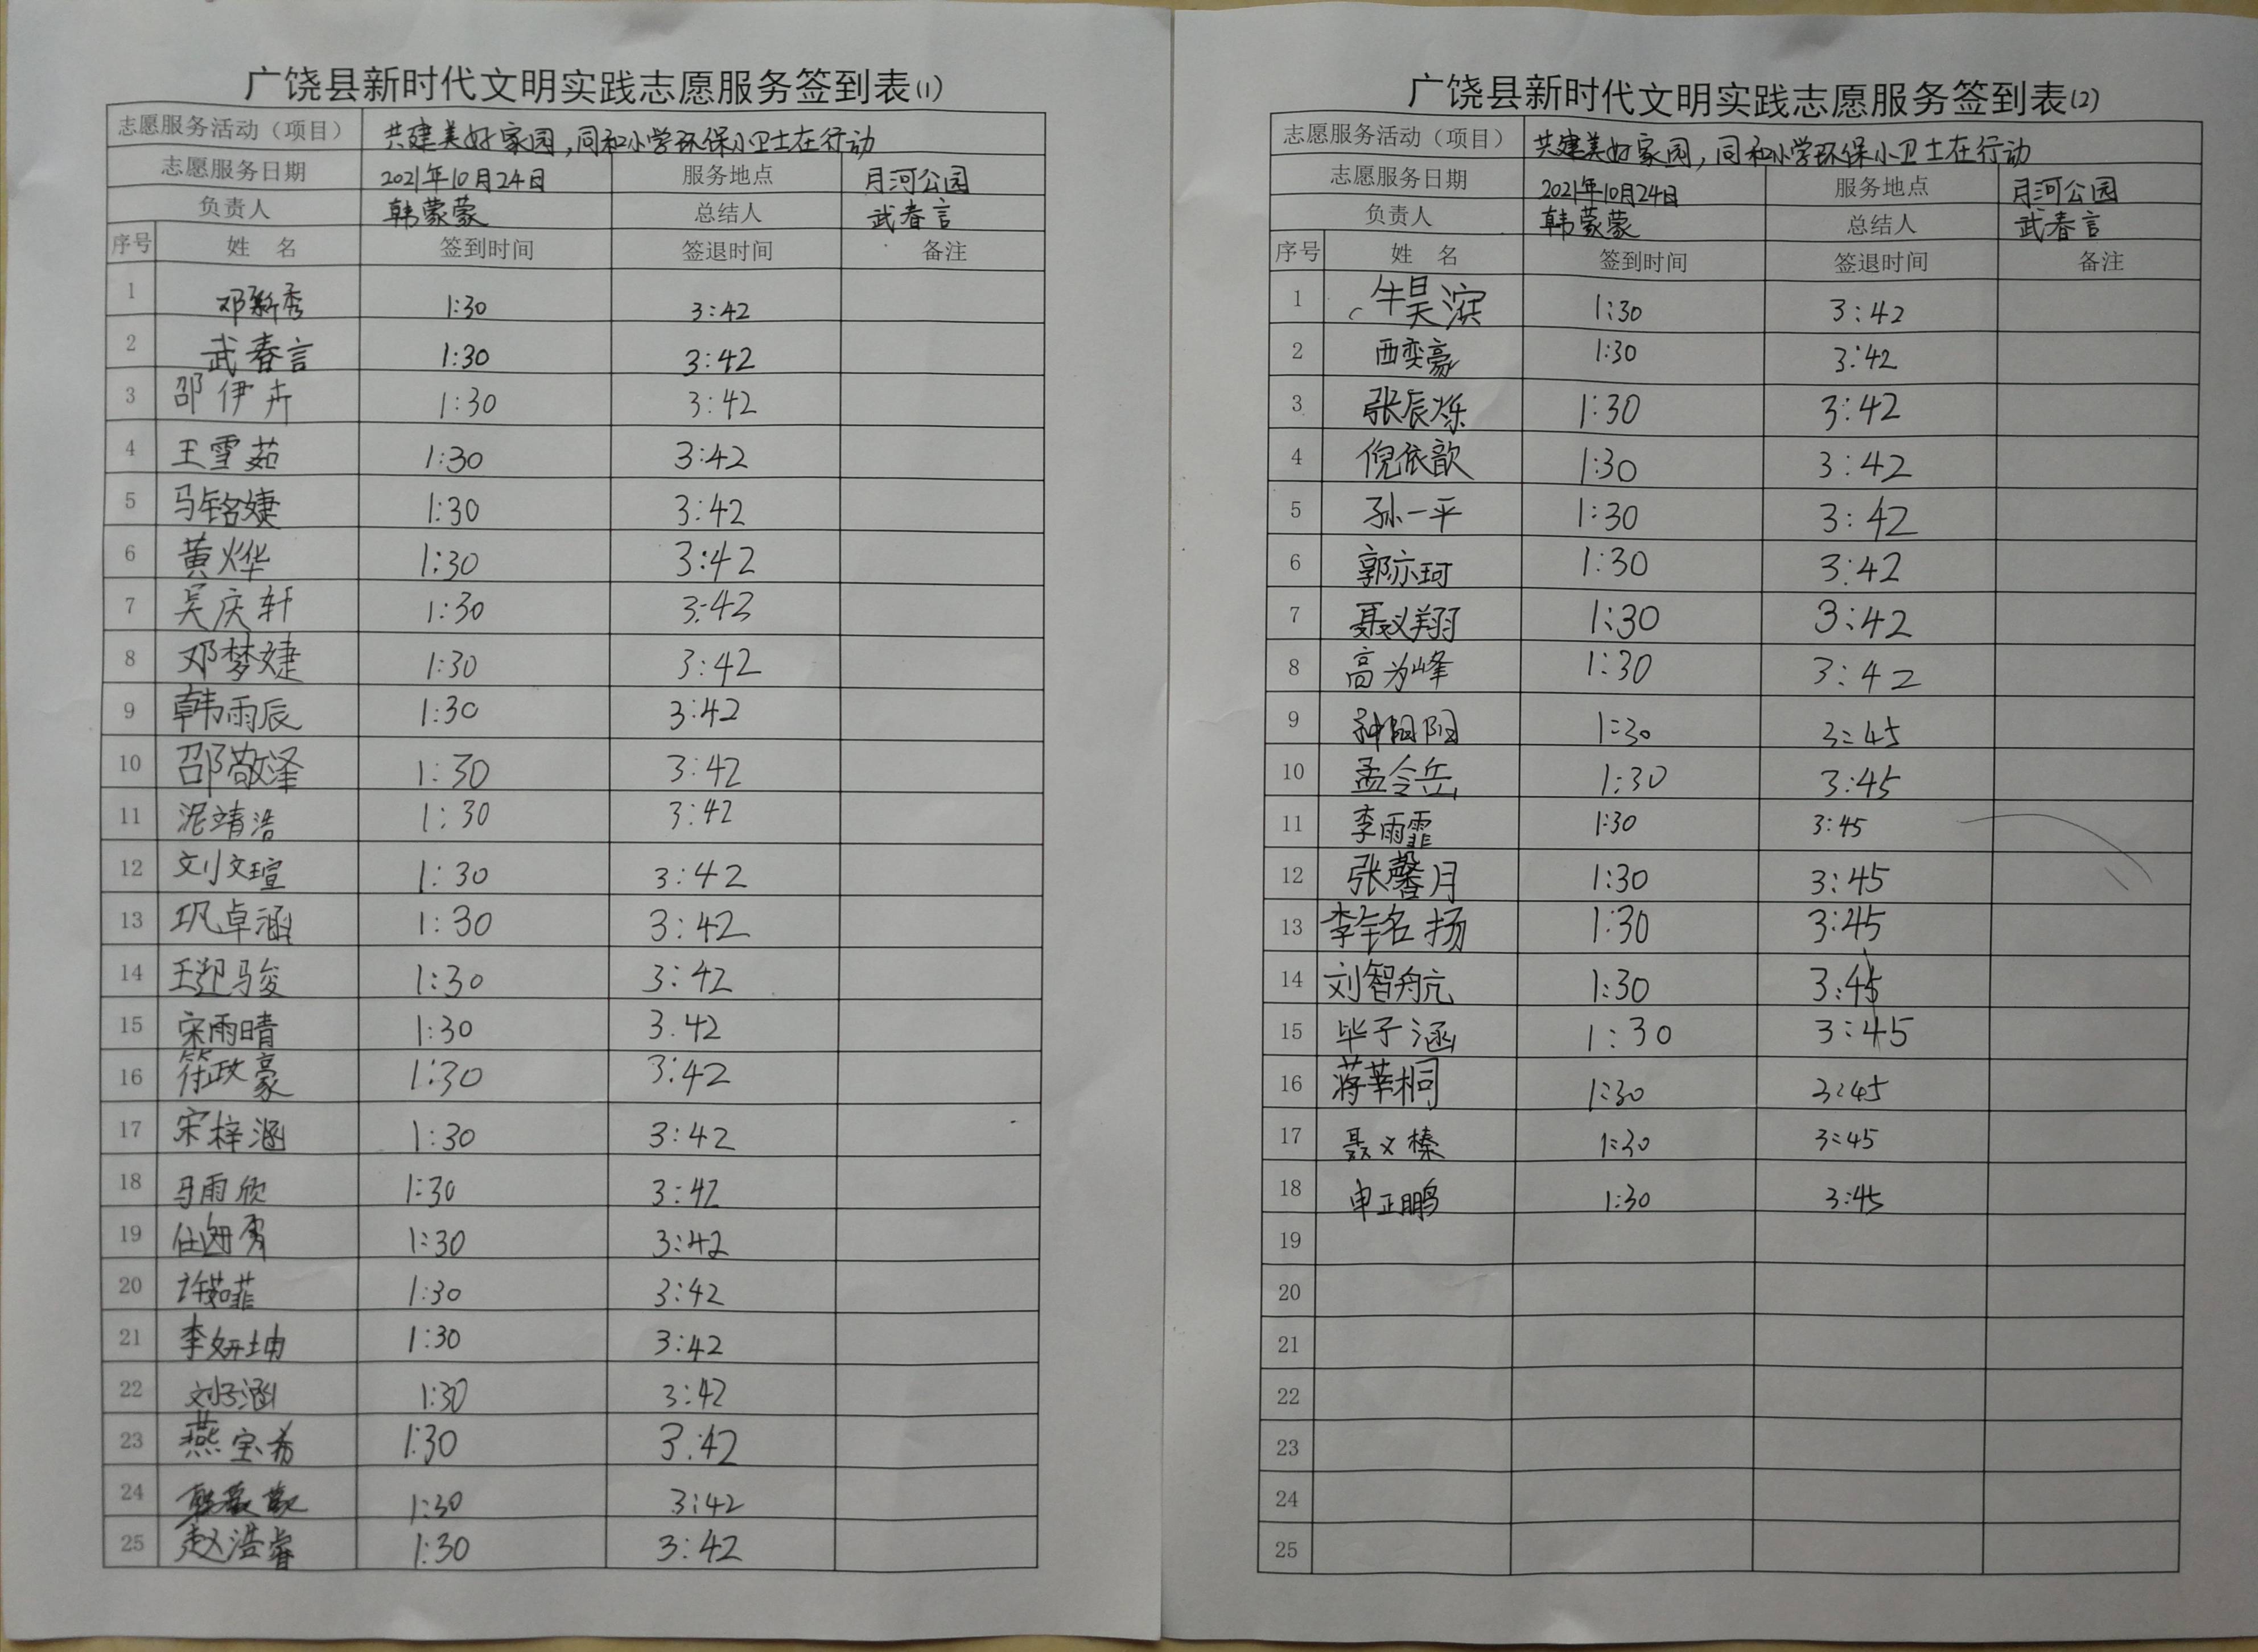 广饶县新时代文明实践志愿服务签到表(1)
志愿服务活动（项目） 共建美好家园,同和小学环保小卫士在行动
志愿服务日期 2021年10月24日 服务地点 月河公园
负责人 韩蒙蒙 总结人 武春言
序号 姓 名 签到时间 签退时间 备注
1 邓新秀 1:30 3:42
2 武春言 1:30 3:42
3 邵伊卉 1:30 3:42
4 王雪茹 1:30 3:42
5 马铭婕 1:30 3:42
6 黄烨 1:30 3:42
7 吴庆轩 1:30 3:42
8 邓梦婕 1:30 3:42
9 韩雨辰 1:30 3:42
10 邵敬泽 1:30 3:42
11 泥靖浩 1:30 3:42
12 刘文瑄 1:30 3:42
13 巩卓涵 1:30 3:42
14 王迎骏 1:30 3:42
15 宋雨晴 1:30 3.42
16 符政豪 1:30 3:42
17 宋梓涵 1:30 3:42
18 马雨欣 1:30 3:42
19 1:30 3:42
20 许茹菲 1:30 3:42
21 李妍坤 1:30 3:42
22 刘子涵 1:30 3:42
23 燕宝希 1:30 3:42
24 韩蒙蒙 1:30 3:42
25 赵浩睿 1:30 3:42
广饶县新时代文明实践志愿服务签到表(2)
志愿服务活动（项目） 共建美好家园,同和小学环保小卫士在行动
志愿服务日期 2021年10月24日 服务地点 月河公园
负责人 韩蒙蒙 总结人 武春言
序号 姓 名 签到时间 签退时间 备注
1 牛昊滨 1:30 3:42
2 西奕豪 1:30 3:42
3 张辰烁 1:30 3:42
4 倪依歆 1:30 3:42
5 孙一平 1:30 3:42
6 郭亦珂 1:30 3:42
7 聂义翔 1:30 3:42
8 高为峰 1:30 3:42
9 1:30 3:45
10 孟令岳 1:30 3:45
11 李雨霏 1:30 3:45
12 张馨月 1:30 3:45
13 李铭扬 1:30 3:45
14 刘智航 1:30 3:45
15 毕子涵 1:30 3:45
16 蒋莘桐 1:30 3:45
17 聂义榛 1:30 3:45
18 申正鹏 1:30 3:45
19
20
21
22
23
24
25